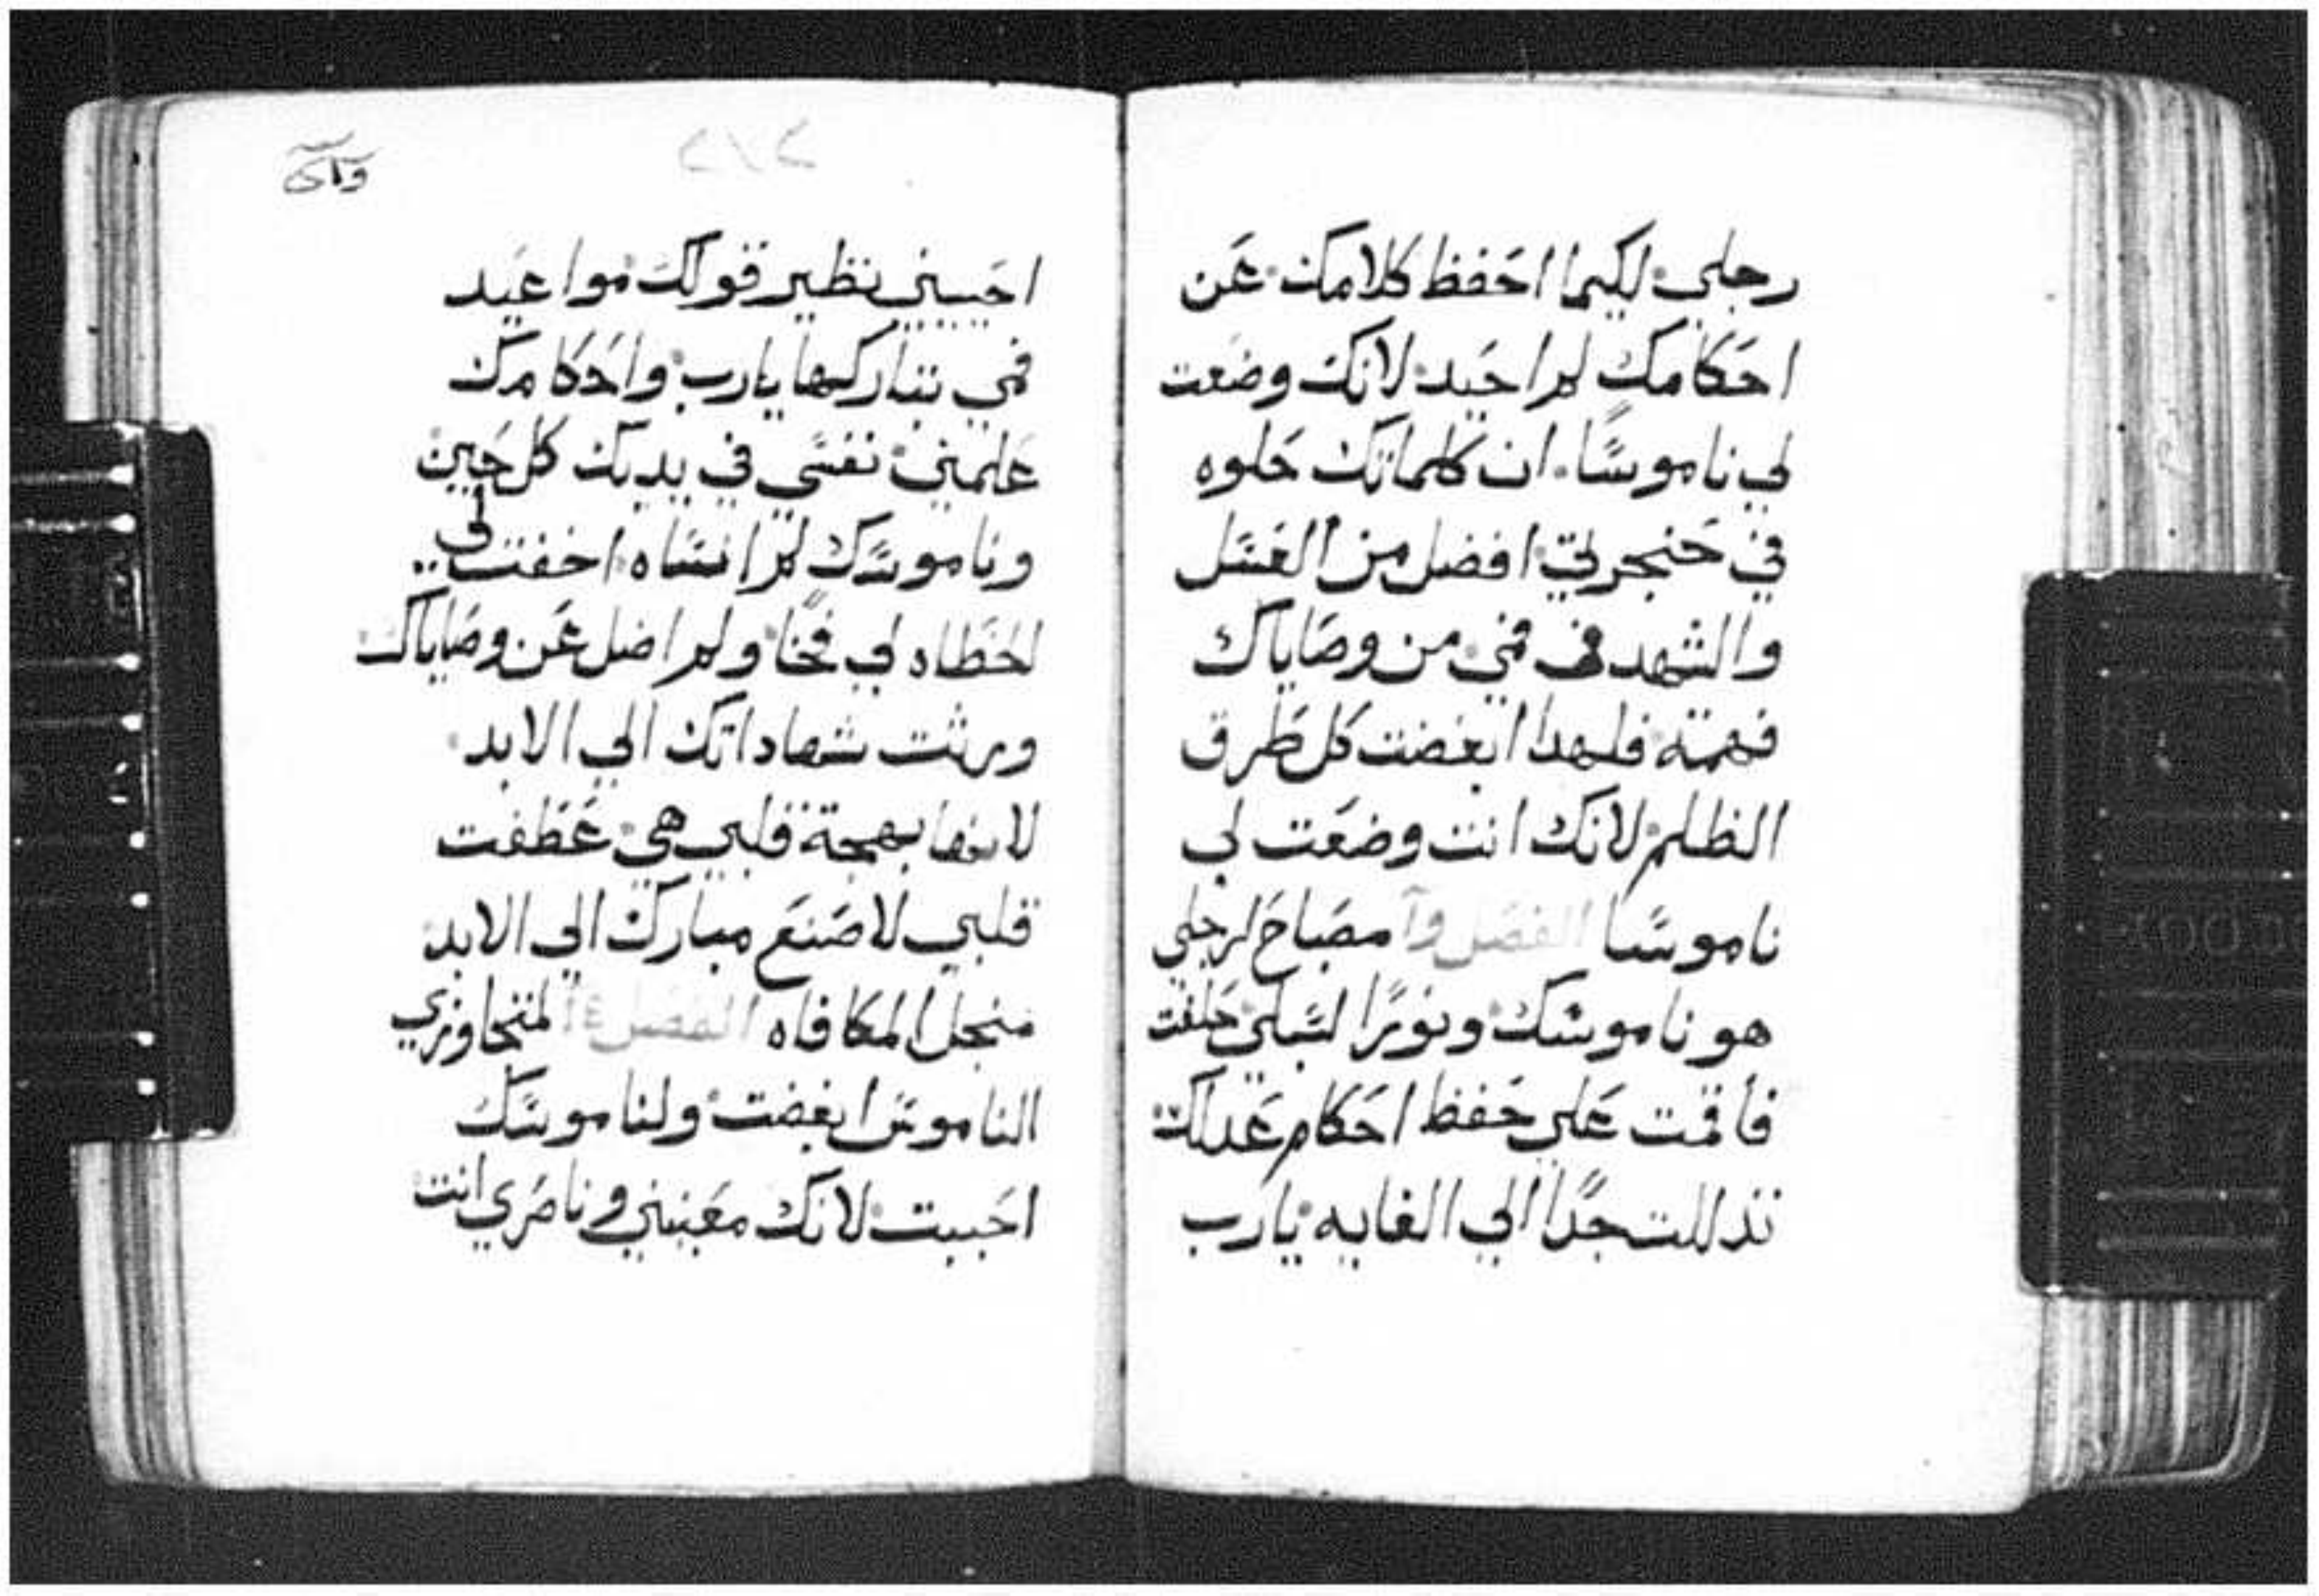 رجلي لكيما احفظ كلامك عن
احكامك لم احيد لانك وضعت
لي ناموسًا ان كلماتك حلوه
في حنجرتي افضل من العسل
والشهد في فمي من وصاياك
فهمت فلهدا ابغضت كل طرق
الظلم لانك انت وضعت لي
ناموسًا الفصل مصباح لرجلي
هو ناموسك ونورًا لسبلي حلفت
فأقمت علي حفظ احكام عدلك
تذللت جدًا الي الغايه يارب
٢١٢
احييني نظير قولك مواعيد
فمي تباركها يارب واحكامك
علمني نفسي في يديك كل حين
وناموسك لم انساه اخفت
الخطاه لي فخًا ولم اضل عن وصاياك
ورثت شهاداتك الي الابد
لانها بهجة قلبي هي عطفت
قلبي لاصنع مبارك الي الابد
منجل المكافاه الفصل لمتجاوزي
الناموس ابغضت ولناموسك
احببت لانك معيني وناصري انت